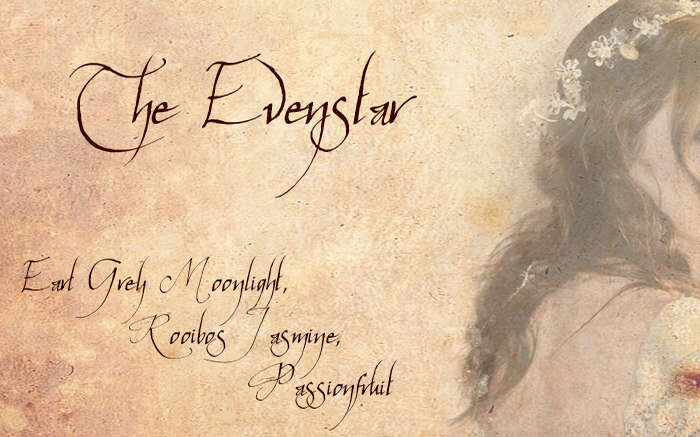 The Evenstar
Earl Grey Moonlight,
Rooibos Jasmine,
Passionfruit